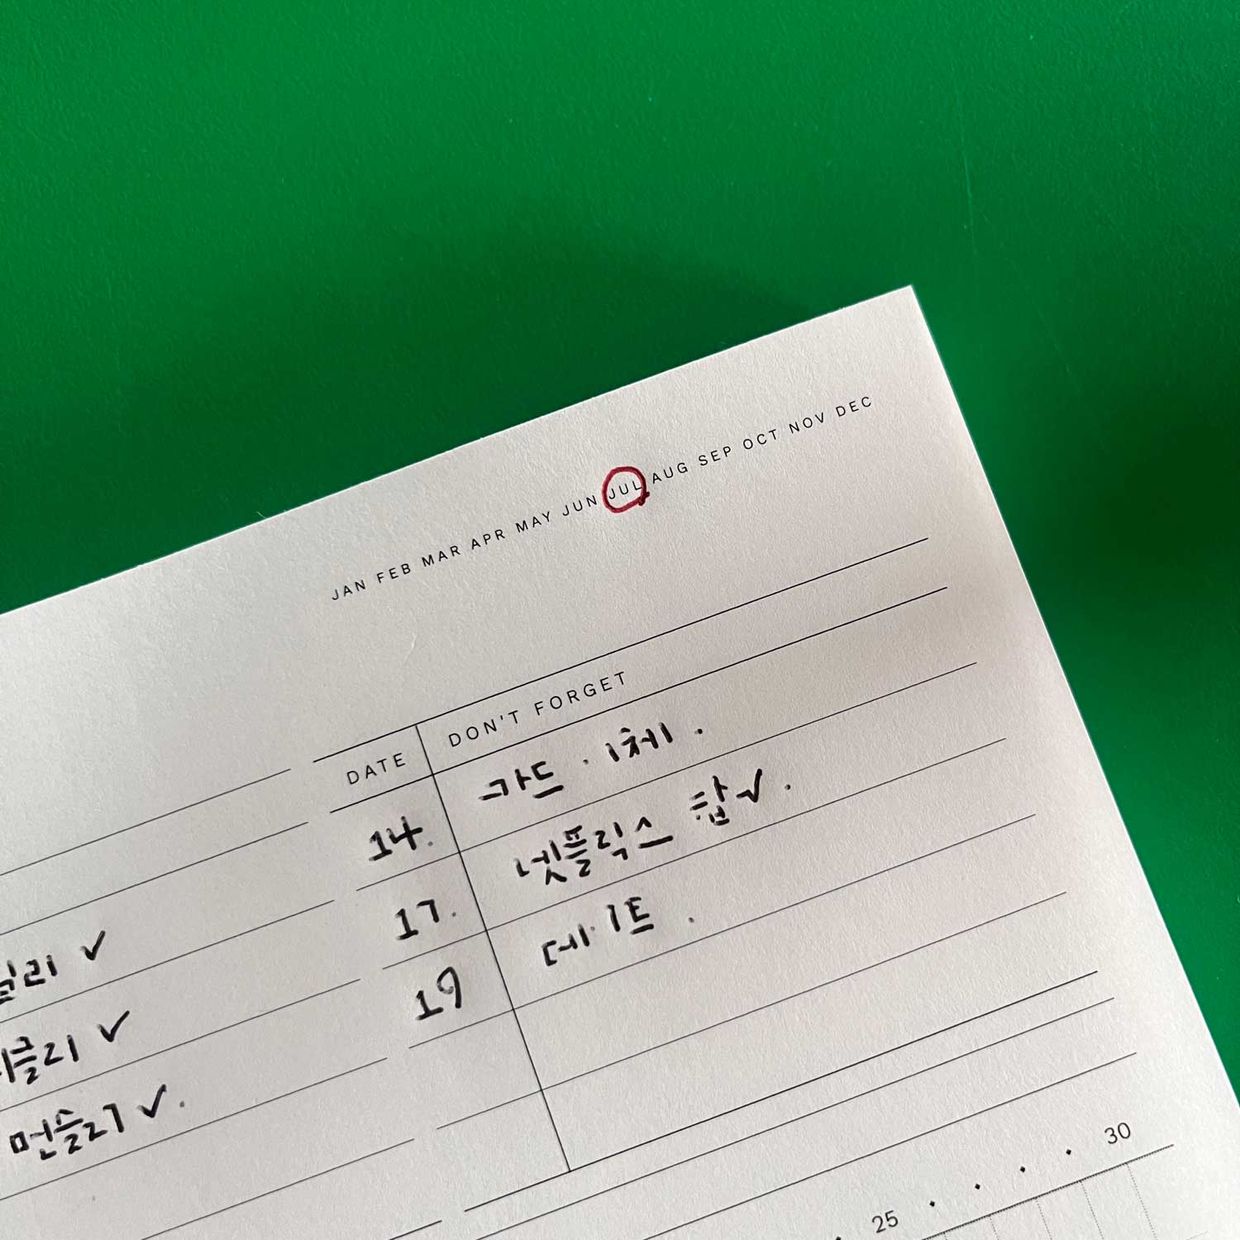 JAN FEB MAR APR MAY JUN JUL AUG SEP OCT NOV DEC
DATE DON'T FORGET
14. 카드 · 이체 .
17. 넷플릭스 탑✓.
19 데이트 .
✓
✓
먼슬리 ✓.
25 · · · · 30